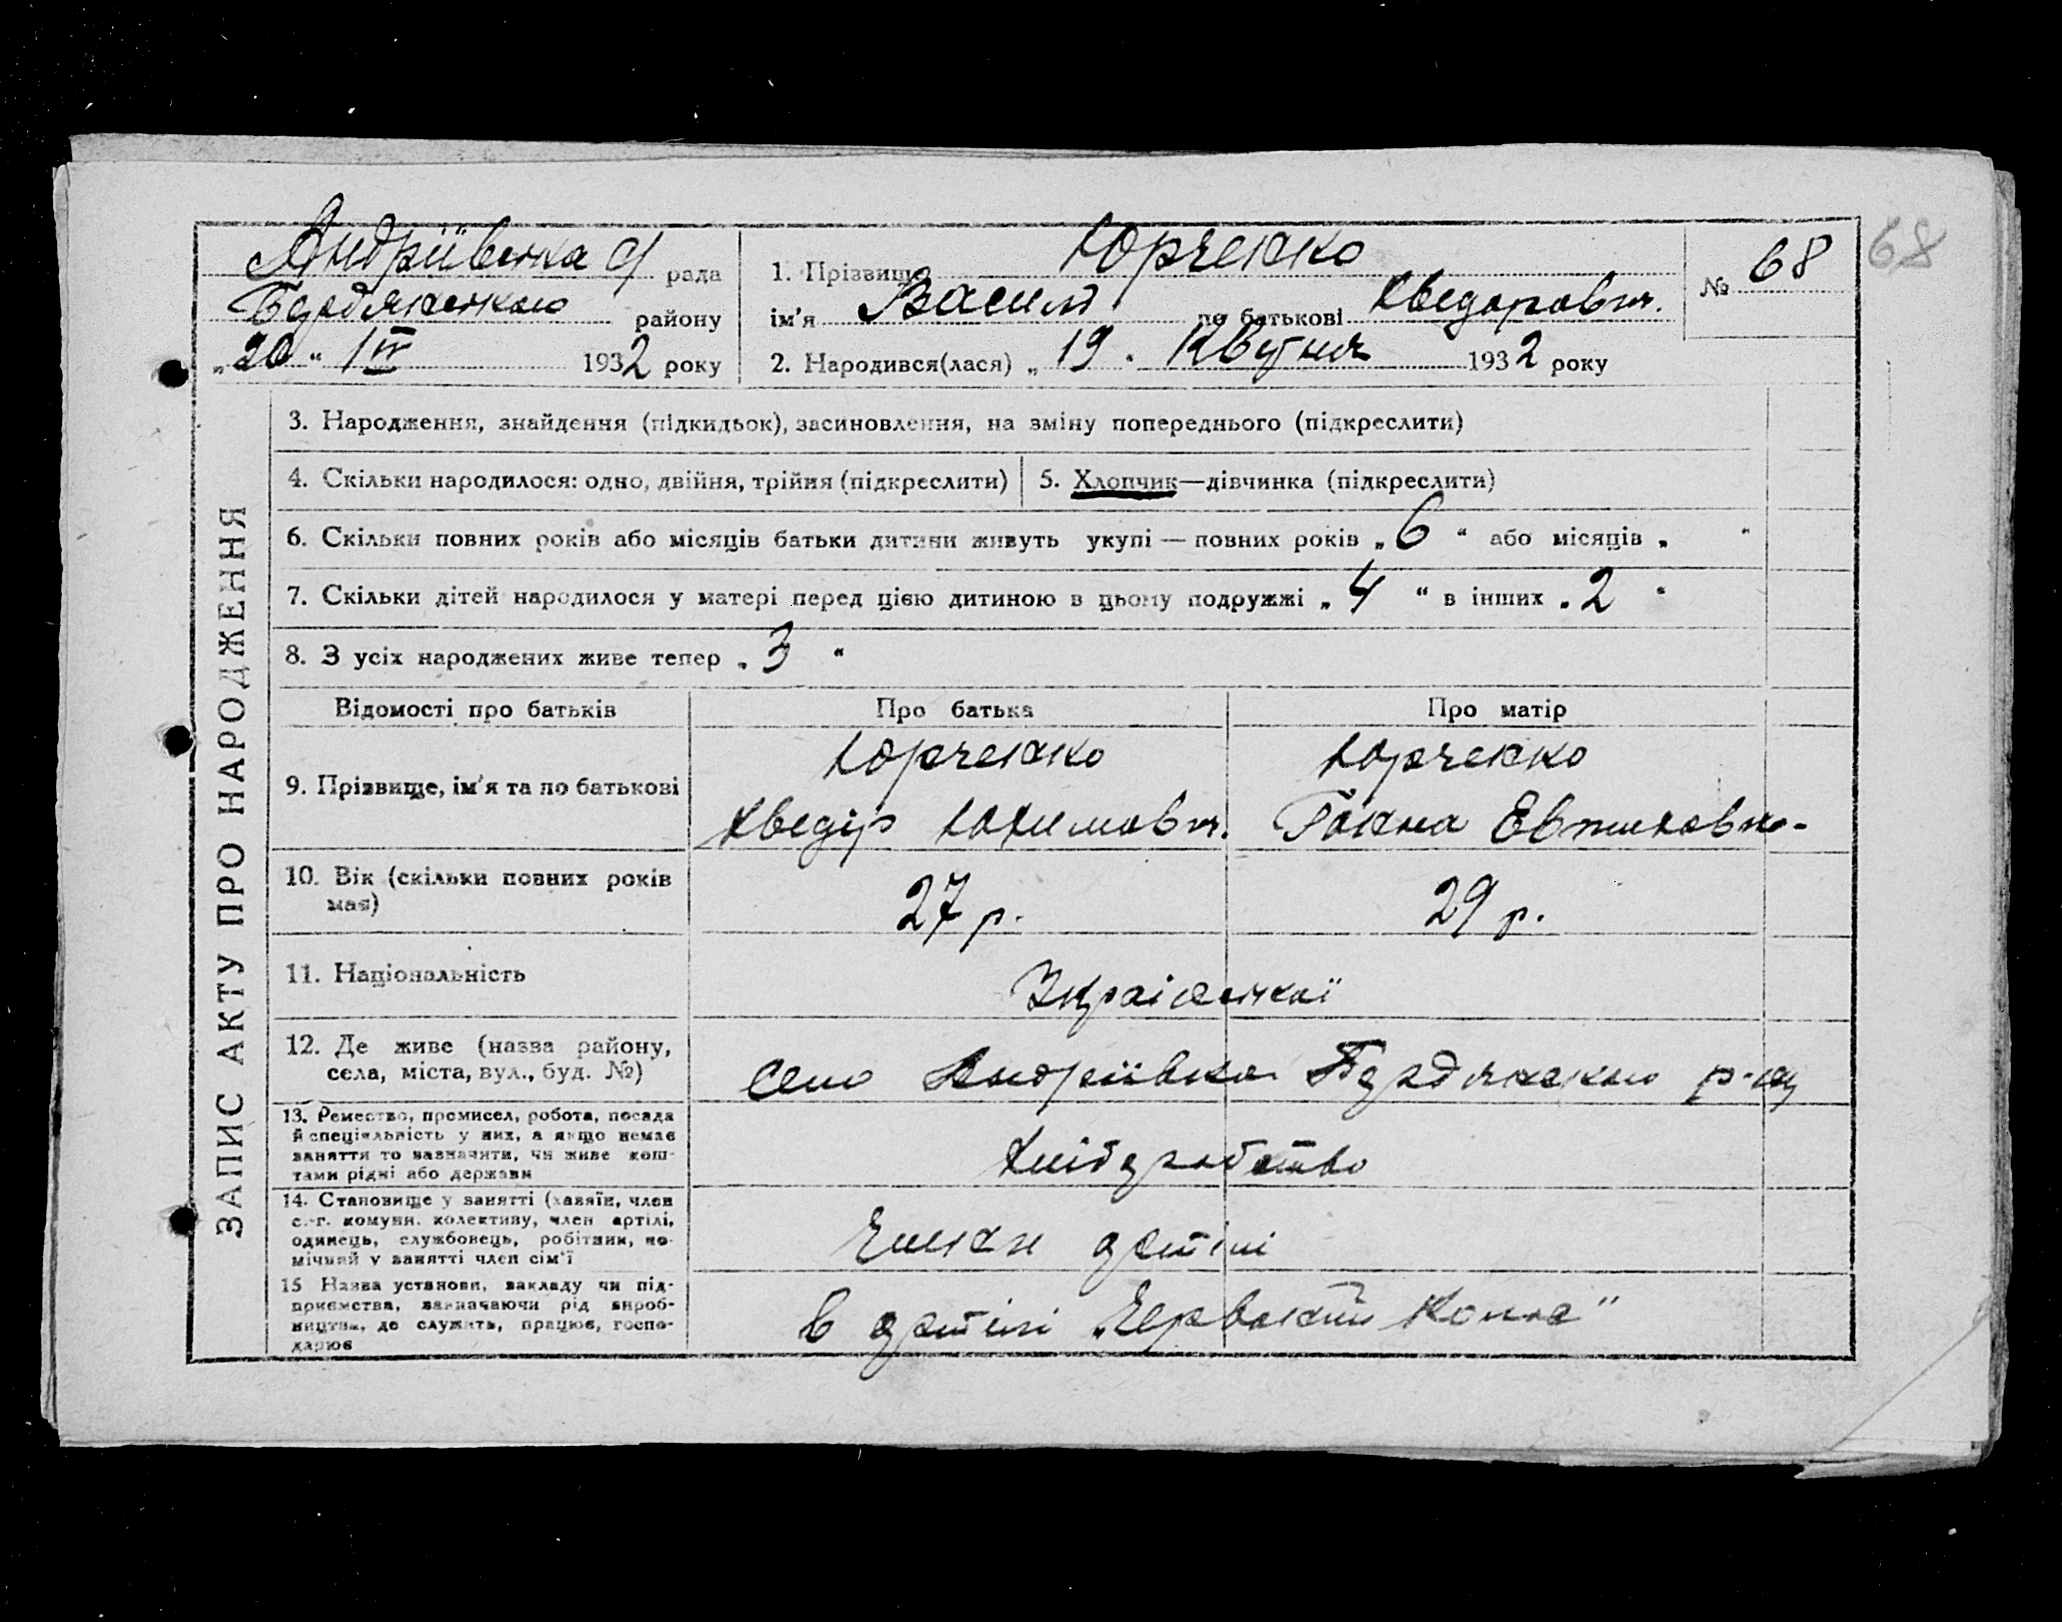 Андріївська с/ рада
Бердянського району
„20“ IV 1932 року
1. Прізвище Юрченко
ім'я Василь по батькові Хведорович.
2. Народився(лася) „19. Квітня 1932 року
№ 68
68
ЗАПИС АКТУ ПРО НАРОДЖЕННЯ
3. Народження, знайдення (підкидьок), засиновлення, на зміну попереднього (підкреслити)
4. Скільки народилося: одно, двійня, трійня (підкреслити)
5. Хлопчик—дівчинка (підкреслити)
6. Скільки повних років або місяців батьки дитини живуть укупі — повних років „6“ або місяців „ “
7. Скільки дітей народилося у матері перед цією дитиною в цьому подружжі „4“ в інших „2“
8. З усіх народжених живе тепер „3“
Відомості про батьків Про батька Про матір
9. Прізвище, ім'я та по батькові
Юрченко
Хведір Юхимович.
Юрченко
Ганна
10. Вік (скільки повних років
має)
27 р.
29 р.
11. Національність
Української
12. Де живе (назва району,
села, міста, вул., буд. №)
село Андріївка Бердянського р-ну
13. Ремество, промисел, робота, посада
й спеціяльність у них, а якщо немає
заняття то зазначити, чи живе кош-
тами рідні або держави
Хліборобство
14. Становище у занятті (хазяїн, член
с.-г. комуни, колективу, член артілі,
одинець, службовець, робітник, по-
мічний у занятті член сім'ї
Член артілі
15 Назва установи, закладу чи під-
приємства, зазначаючи рід вироб-
ництва, де служить, працює, госпо-
дарює
в артілі „Червоний